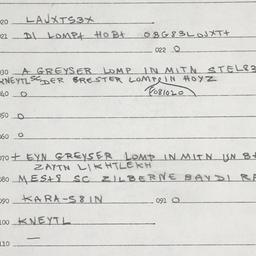 020 LAJXTS3X
021 DI LOMPt HOBt O8G83LOJXTt
022 O
030 A GREYSER LOMP IN MITN STEL83
KNEYTL SC DER BRESTER LOMP IN HOYZ
040 O
P081020
050 O
060 O
070 t EYN GREYSER LOMP IN MITN UN Bt
ZAYTN LIKHTLEKH
080 MESt8 SC ZILBERNE BAYDI RA
090 KARA-S8IN 091 O
100 KNEYTL
110 —